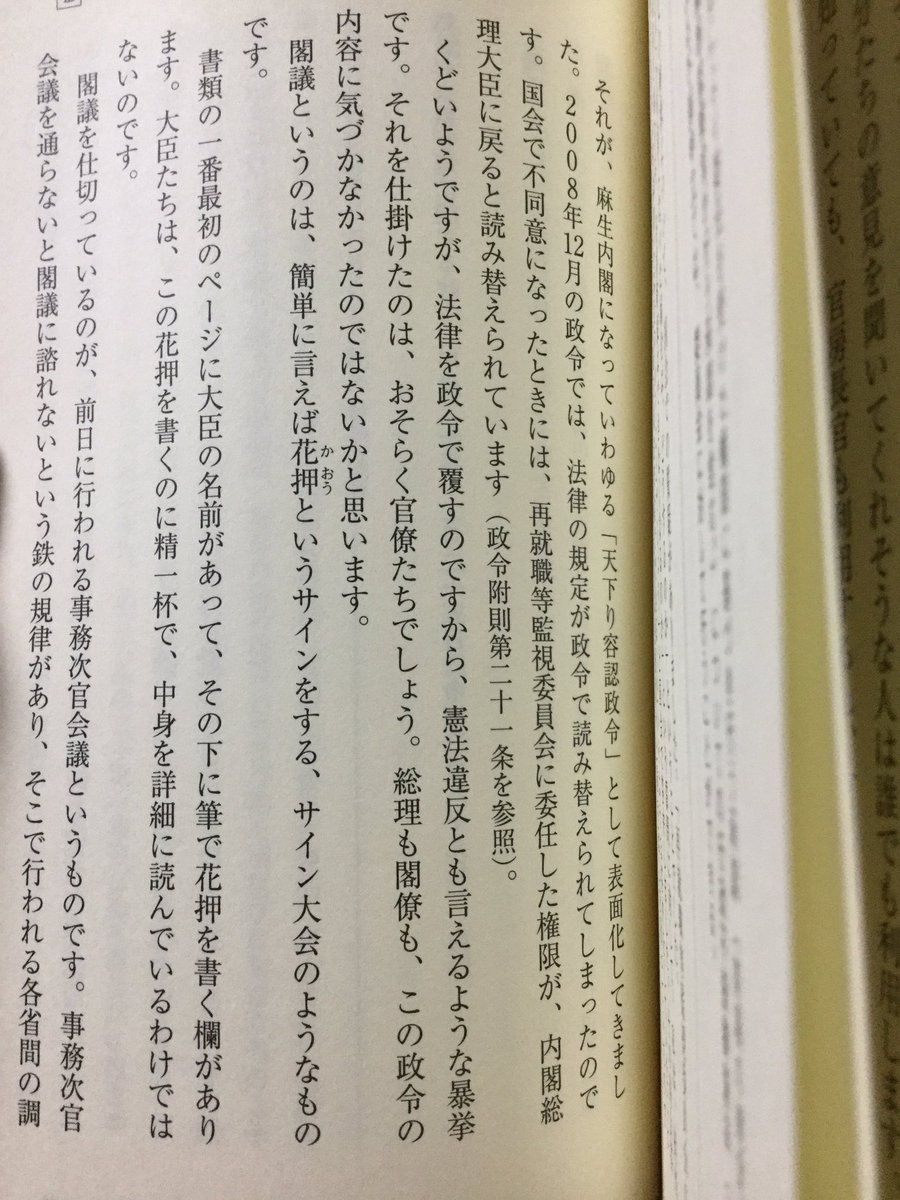 それが、麻生内閣になっていわゆる「天下り容認政令」として表面化してきまし
た。2008年12月の政令では、法律の規定が政令で読み替えられてしまったので
す。国会で不同意になったときには、再就職等監視委員会に委任した権限が、内閣総
理大臣に戻ると読み替えられています（政令附則第二十一条を参照）。
くどいようですが、法律を政令で覆すのですから、憲法違反とも言えるような暴挙
です。それを仕掛けたのは、おそらく官僚たちでしょう。総理も閣僚も、この政令の
内容に気づかなかったのではないかと思います。
閣議というのは、簡単に言えば花押というサインをする、サイン大会のようなもの
かおう
です。
書類の一番最初のページに大臣の名前があって、その下に筆で花押を書く欄があり
ます。大臣たちは、この花押を書くのに精一杯で、中身を詳細に読んでいるわけでは
ないのです。
閣議を仕切っているのが、前日に行われる事務次官会議というものです。事務次官
会議を通らないと閣議に諮れないという鉄の規律があり、そこで行われる各省間の調
たちの意見を聞いてくれそうな人は誰でも利用します